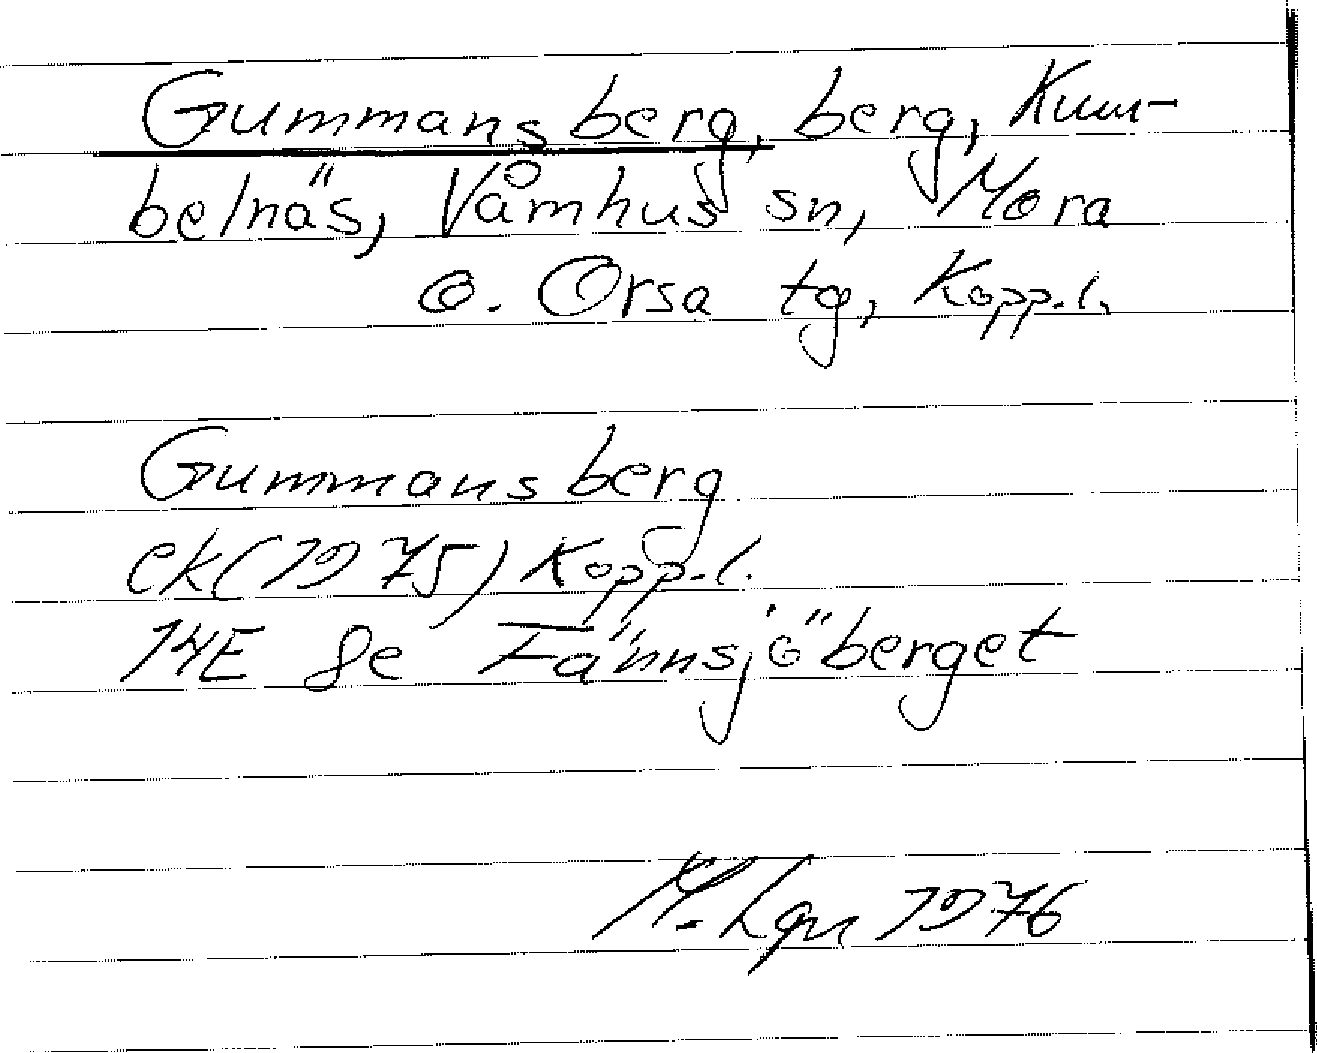 Gummansberg, berg, Kum-
belnäs, Våmhus sn, Mora
o. Orsa tg, Kopp.l.
Gummansberg
ek(1975) Kopp.l.
14E 8e Fännsjöberget
M. Lgn 1976